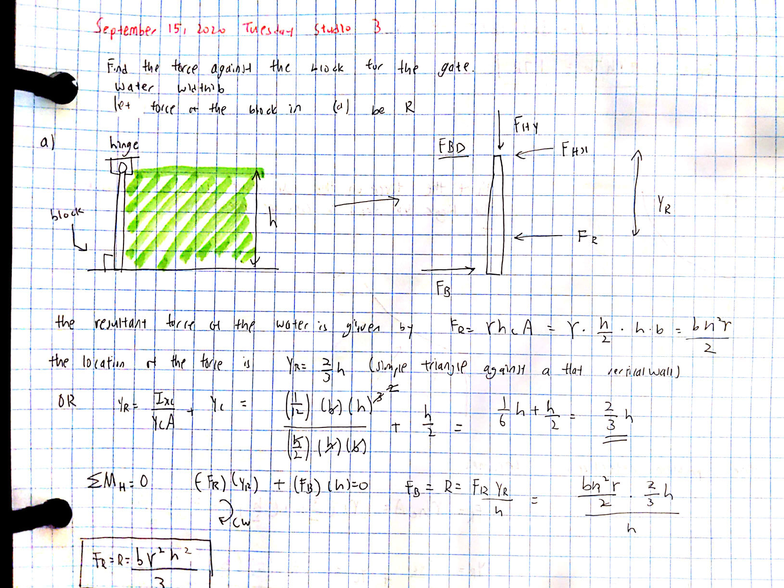 September 15, 2020 Tuesday Studio 3
Find the force against the block for the gate.
Water width b
let force of the block in (a) be R
a)
hinge
block
h
FBD
F_HY
F_HX
Y_R
F_R
F_B
the resultant force of the water is given by F_R = γ h_c A = γ · h/2 · h · b = bh²γ/2
the location of the force is Y_R = 2/3 h (simple triangle against a flat vertical wall)
OR Y_R = I_xc/(Y_c A) + Y_c = (1/12)(b)(h)^3 2 / (h/2)(h)(b) + h/2 = 1/6 h + h/2 = 2/3 h
ΣM_H = 0 (F_R)(Y_R) + (F_B)(h) = 0 F_B = R = F_R Y_R / h = (bh²γ/2 · 2/3 h) / h
CW
F_R = R = bγ²h²/3